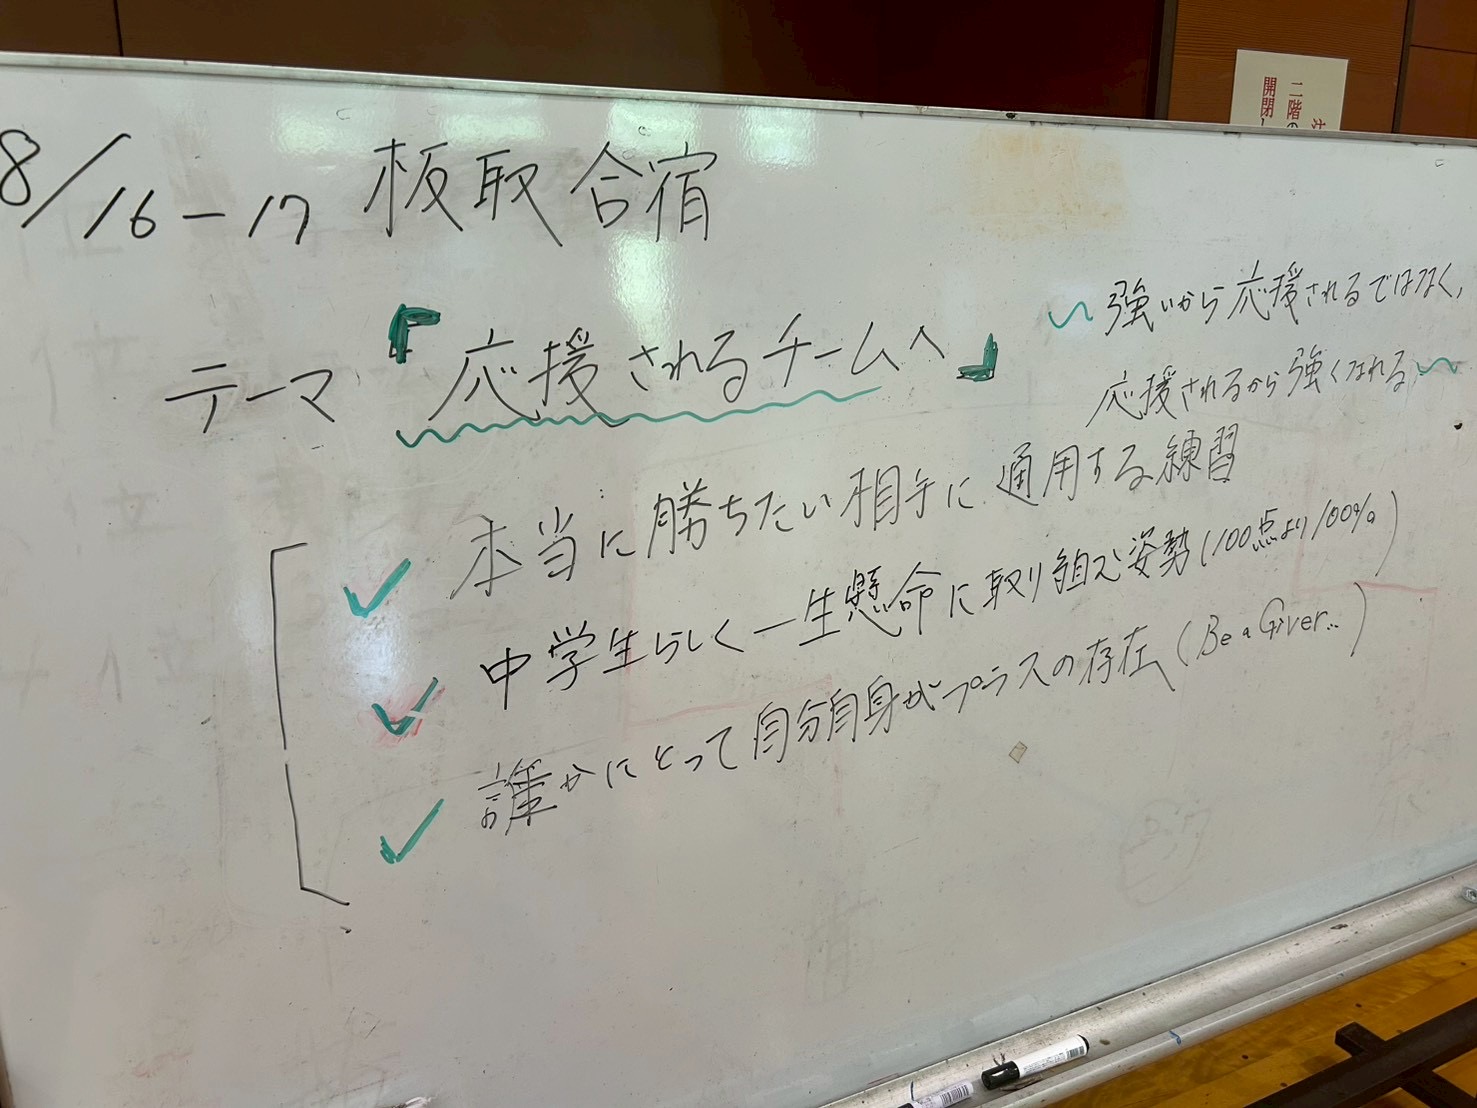 8/16-17 板取合宿
テーマ『応援されるチームへ』
〜強いから応援されるではなく,
応援されるから強くなれる〜
✓ 本当に勝ちたい相手に通用する練習
✓ 中学生らしく一生懸命に取り組む姿勢(100点より100%)
✓ 誰かにとって自分自身がプラスの存在(Be a Giver...)
二階の
開閉